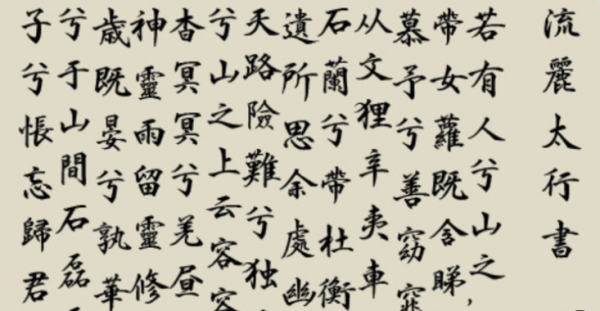 流麗太行書
若有人兮山之
帶女蘿既含睇
慕予兮善窈窕
从文狸辛夷車
石蘭兮帶杜衡
遺所思余處幽
天路險難兮独
兮山之上云容容
杳冥冥兮羌昼
神靈雨留靈修
歳既晏兮孰華
兮于山間石磊
子兮悵忘歸君